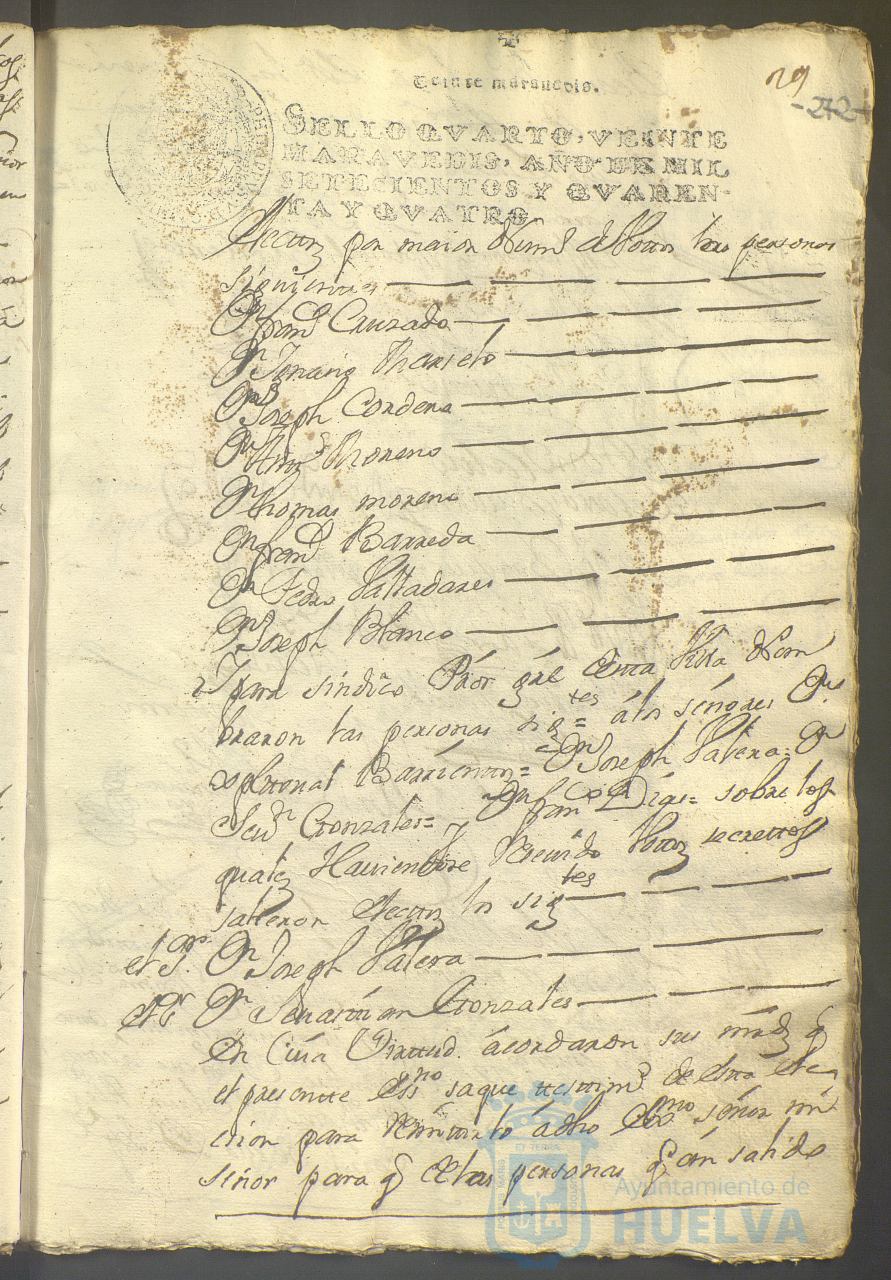 29
-272-
Veinte maravedis.
SELLO QVARTO, VEINTE
MARAVEDIS, AÑO DE MIL
SETECIENTOS Y QVAREN-
TA Y QVATRO
electos por maior Numº de Vottos las personas
siguientes
Dn franco Cruzado
Dn Ignacio
Dn Joseph Cordero
Dn Moreno
Dn thomas moreno
Dn franco Barreda
Dn Pedro Valladares
Dn Joseph Blanco
Y para sindico Pror gral de esta Villa Nom
braron las personas sigtes = á los señores Dn
Barrientos = Dn Joseph Valera = Dn
Sevn Gonzales = y Dn franco Diaz = sobre los
quales Haviendose Vottos secrettos
salieron electos los sigtes
el Pº. Dn Joseph Valera
Dn Sevastian Gonzales
En Cuia Virttud. acordaron sus mrds q
el presentte Essno saque testtimº de esta elec
cion para Remitirlo á dho Exmo señor mi
señor para q de las personas q án salido
Ayuntamiento de
HUELVA